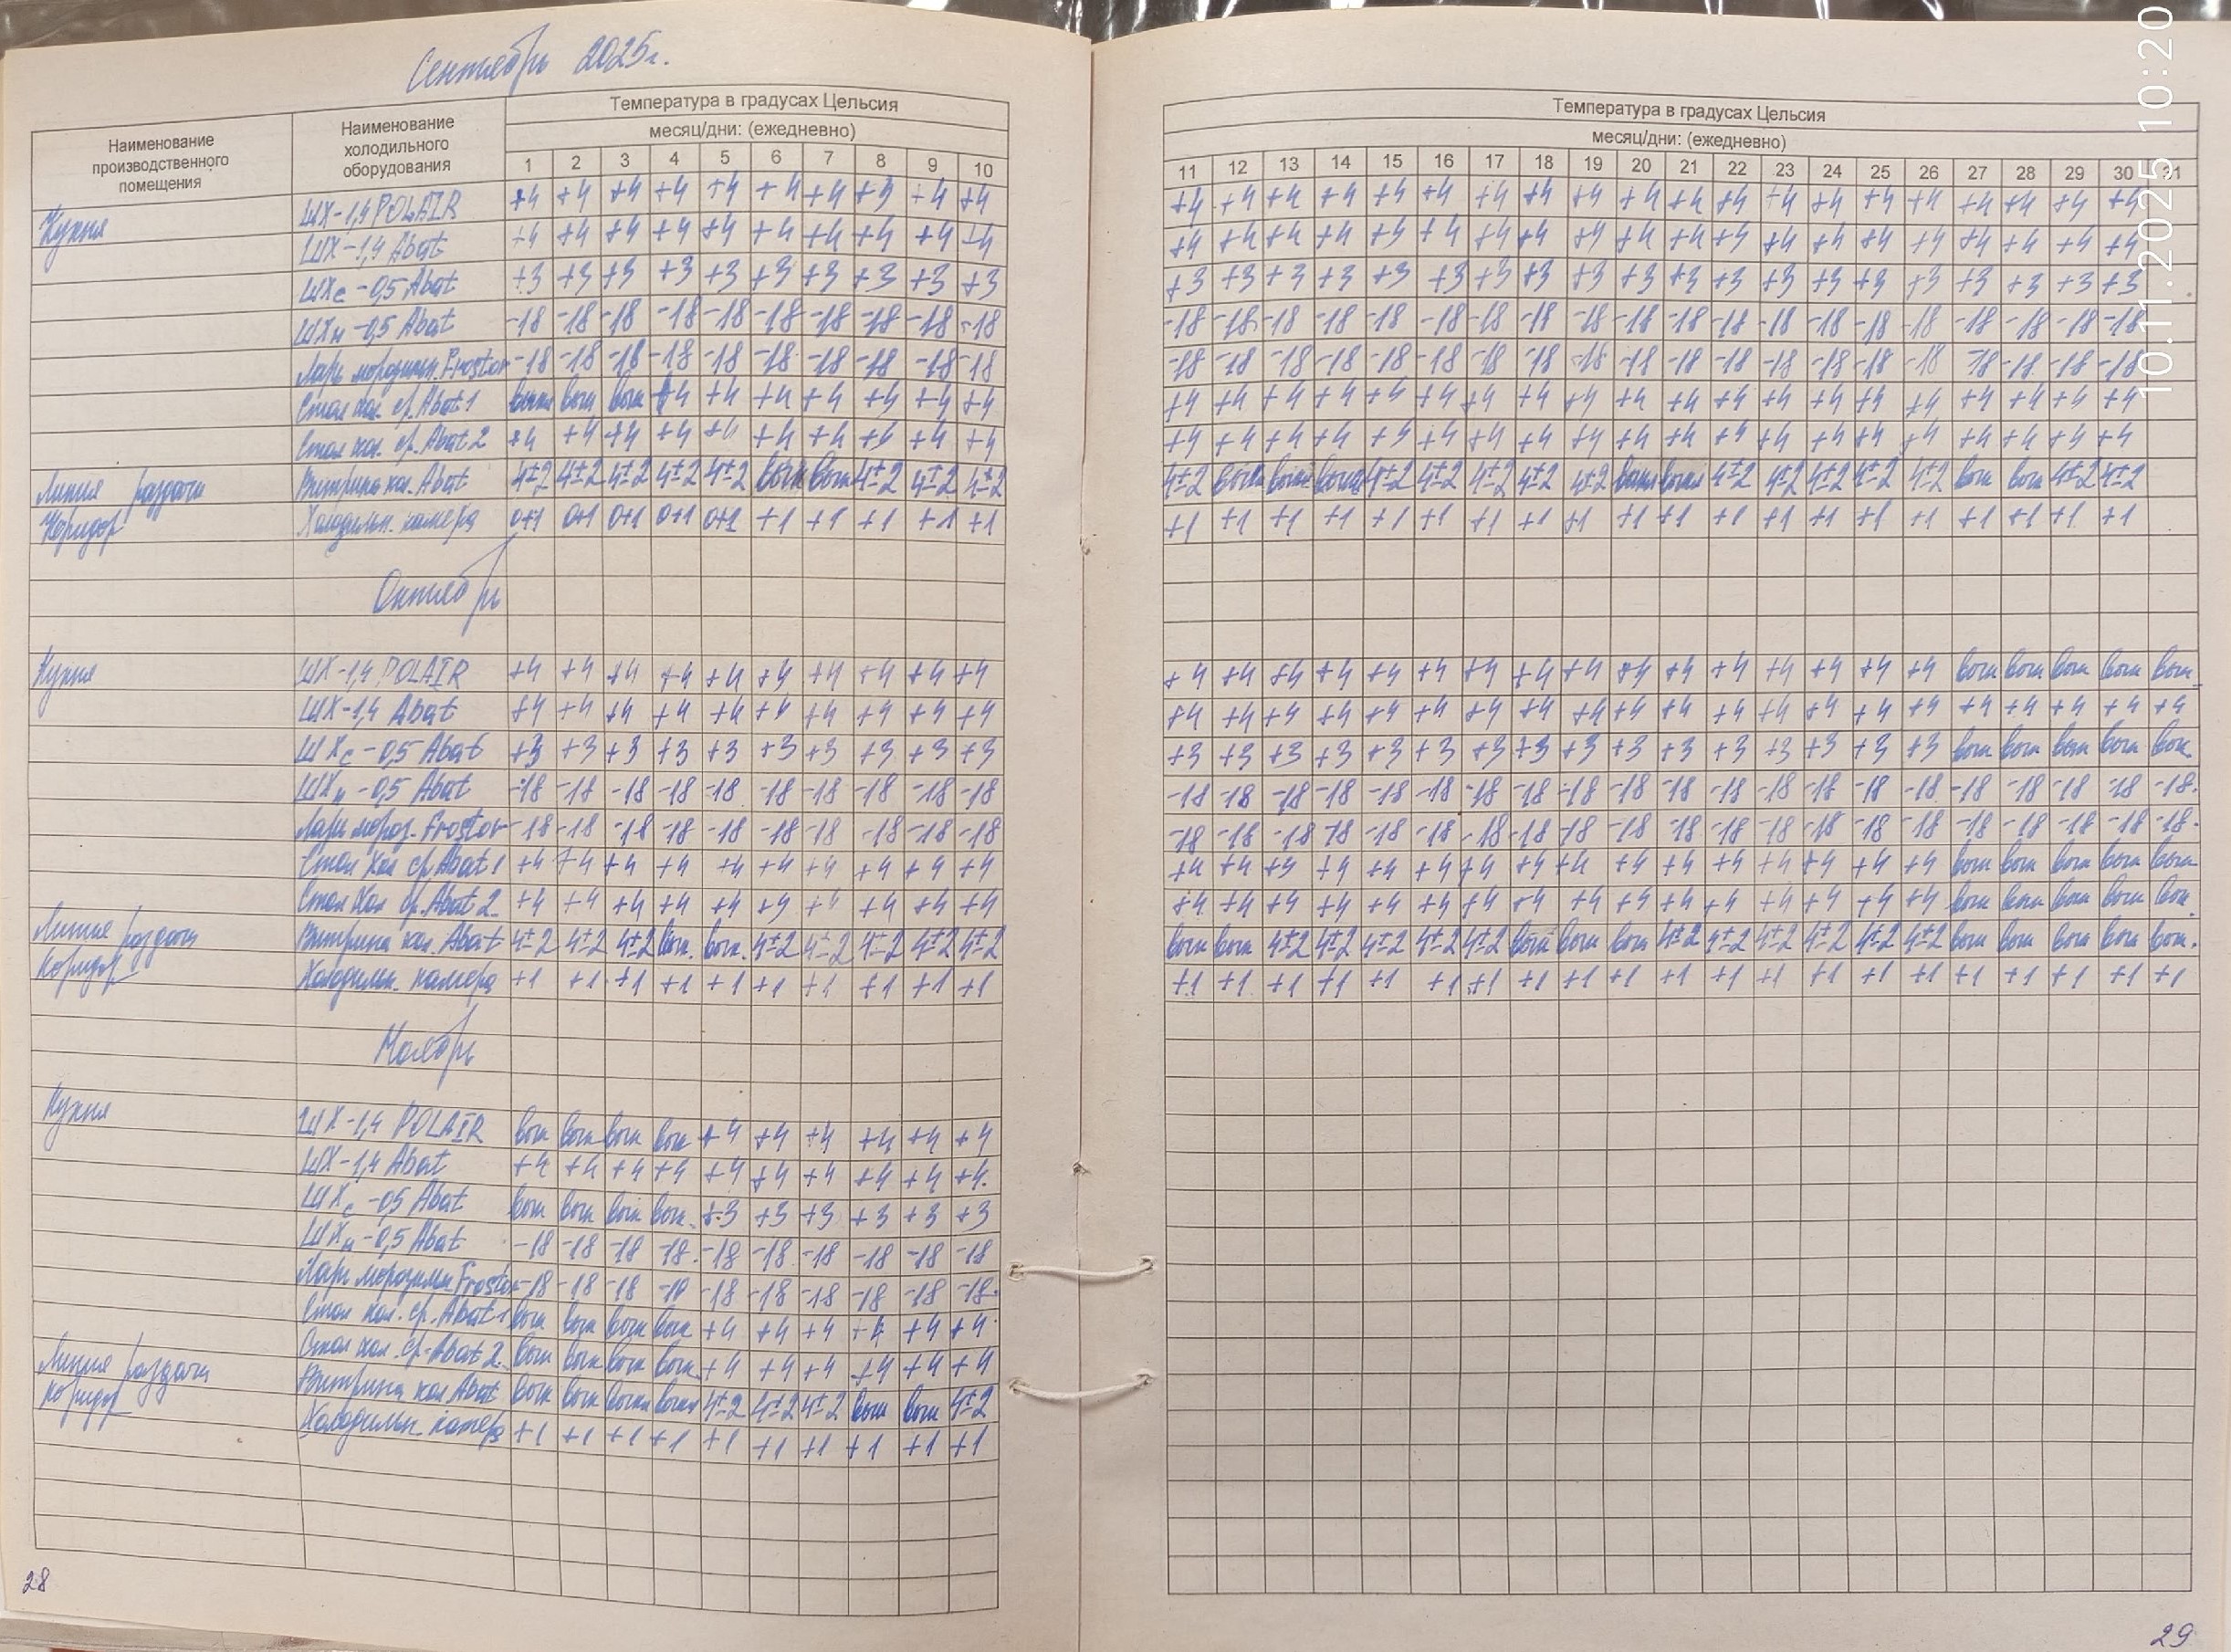 Сентябрь 2025г.
Наименование производственного помещения | Наименование холодильного оборудования | Температура в градусах Цельсия | Температура в градусах Цельсия
месяц/дни: (ежедневно) | месяц/дни: (ежедневно)
1 2 3 4 5 6 7 8 9 10 | 11 12 13 14 15 16 17 18 19 20 21 22 23 24 25 26 27 28 29 30 31
Кухня ШХ-1,4 POLAIR +4 +4 +4 +4 +4 +4 +4 +3 +4 +4 | +4 +4 +4 +4 +4 +4 +4 +4 +4 +4 +4 +4 +4 +4 +4 +4 +4 +4 +4 +4
ШХ-1,4 Abat +4 +4 +4 +4 +4 +4 +4 +4 +4 +4 | +4 +4 +4 +4 +4 +4 +4 +4 +4 +4 +4 +4 +4 +4 +4 +4 +4 +4 +4 +4
ШХс-0,5 Abat +3 +3 +3 +3 +3 +3 +3 +3 +3 +3 | +3 +3 +3 +3 +3 +3 +3 +3 +3 +3 +3 +3 +3 +3 +3 +3 +3 +3 +3 +3
ШХн-0,5 Abat -18 -18 -18 -18 -18 -18 -18 -18 -18 -18 | -18 -18 -18 -18 -18 -18 -18 -18 -18 -18 -18 -18 -18 -18 -18 -18 -18 -18 -18 -18
Ларь морозильн. Frostor -18 -18 -18 -18 -18 -18 -18 -18 -18 -18 | -18 -18 -18 -18 -18 -18 -18 -18 -18 -18 -18 -18 -18 -18 -18 -18 -18 -18 -18 -18
Стол хол. ср. Abat 1 выкл выкл выкл +4 +4 +4 +4 +4 +4 +4 | +4 +4 +4 +4 +4 +4 +4 +4 +4 +4 +4 +4 +4 +4 +4 +4 +4 +4 +4 +4
Стол хол. ср. Abat 2 +4 +4 +4 +4 +4 +4 +4 +4 +4 +4 | +4 +4 +4 +4 +4 +4 +4 +4 +4 +4 +4 +4 +4 +4 +4 +4 +4 +4 +4 +4
Линия раздачи Витрина хол. Abat 4±2 4±2 4±2 4±2 4±2 выкл выкл 4±2 4±2 4±2 | 4±2 выкл выкл выкл 4±2 4±2 4±2 4±2 4±2 выкл выкл 4±2 4±2 4±2 4±2 4±2 выкл выкл 4±2 4±2
Коридор Холодильн. камера 0+1 0+1 0+1 0+1 0+1 +1 +1 +1 +1 +1 | +1 +1 +1 +1 +1 +1 +1 +1 +1 +1 +1 +1 +1 +1 +1 +1 +1 +1 +1 +1
Октябрь
Кухня ШХ-1,4 POLAIR +4 +4 +4 +4 +4 +4 +4 +4 +4 +4 | +4 +4 +4 +4 +4 +4 +4 +4 +4 +4 +4 +4 +4 +4 +4 +4 выкл выкл выкл выкл выкл
ШХ-1,4 Abat +4 +4 +4 +4 +4 +4 +4 +4 +4 +4 | +4 +4 +4 +4 +4 +4 +4 +4 +4 +4 +4 +4 +4 +4 +4 +4 +4 +4 +4 +4 +4
ШХс-0,5 Abat +3 +3 +3 +3 +3 +3 +3 +3 +3 +3 | +3 +3 +3 +3 +3 +3 +3 +3 +3 +3 +3 +3 +3 +3 +3 +3 выкл выкл выкл выкл выкл
ШХн-0,5 Abat -18 -18 -18 -18 -18 -18 -18 -18 -18 -18 | -18 -18 -18 -18 -18 -18 -18 -18 -18 -18 -18 -18 -18 -18 -18 -18 -18 -18 -18 -18 -18.
Ларь мороз. Frostor -18 -18 -18 -18 -18 -18 -18 -18 -18 -18 | -18 -18 -18 -18 -18 -18 -18 -18 -18 -18 -18 -18 -18 -18 -18 -18 -18 -18 -18 -18 -18.
Стол хол ср Abat 1 +4 +4 +4 +4 +4 +4 +4 +4 +4 +4 | +4 +4 +4 +4 +4 +4 +4 +4 +4 +4 +4 +4 +4 +4 +4 +4 выкл выкл выкл выкл выкл
Стол хол ср. Abat 2 +4 +4 +4 +4 +4 +4 +4 +4 +4 +4 | +4 +4 +4 +4 +4 +4 +4 +4 +4 +4 +4 +4 +4 +4 +4 +4 выкл выкл выкл выкл выкл.
Линия раздачи Витрина хол. Abat 4±2 4±2 4±2 выкл. выкл. 4±2 4±2 4±2 4±2 4±2 | выкл выкл 4±2 4±2 4±2 4±2 4±2 выкл выкл выкл 4±2 4±2 4±2 4±2 4±2 4±2 выкл выкл выкл выкл выкл.
Коридор Холодильн. камера +1 +1 +1 +1 +1 +1 +1 +1 +1 +1 | +1 +1 +1 +1 +1 +1 +1 +1 +1 +1 +1 +1 +1 +1 +1 +1 +1 +1 +1 +1 +1
Ноябрь
Кухня ШХ-1,4 POLAIR выкл выкл выкл выкл +4 +4 +4 +4 +4 +4
ШХ-1,4 Abat +4 +4 +4 +4 +4 +4 +4 +4 +4 +4.
ШХс-05 Abat выкл выкл выкл выкл. +3 +3 +3 +3 +3 +3
ШХн-0,5 Abat -18 -18 -18 -18. -18 -18 -18 -18 -18 -18
Ларь морозильн Frostor -18 -18 -18 -18 -18 -18 -18 -18 -18 -18.
Стол хол. ср. Abat 1 выкл выкл выкл выкл +4 +4 +4 +4 +4 +4.
Стол хол. ср. Abat 2. выкл выкл выкл выкл. +4 +4 +4 +4 +4 +4
Линия раздачи Витрина хол Abat выкл выкл выкл выкл 4±2 4±2 4±2 выкл выкл 4±2
Коридор Холодильн. камера +1 +1 +1 +1 +1 +1 +1 +1 +1 +1
28
29
10.11.2025 10:20